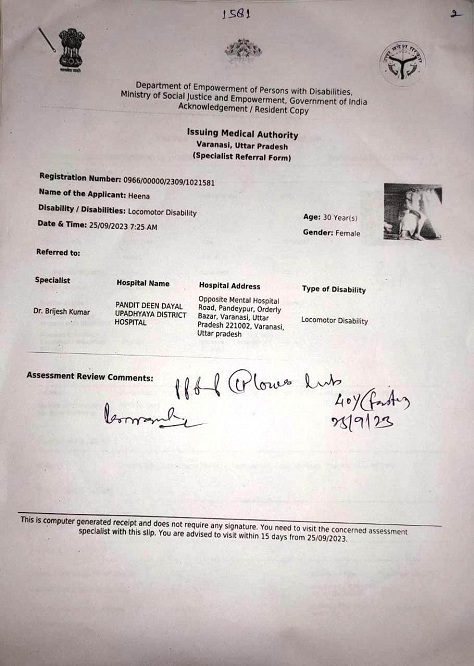 1581
2
Department of Empowerment of Persons with Disabilities,
Ministry of Social Justice and Empowerment, Government of India
Acknowledgement / Resident Copy
Issuing Medical Authority
Varanasi, Uttar Pradesh
(Specialist Referral Form)
Registration Number: 0966/00000/2309/1021581
Name of the Applicant: Heena
Disability / Disabilities: Locomotor Disability
Age: 30 Year(s)
Date & Time: 25/09/2023 7:25 AM
Gender: Female
Referred to:
Specialist Hospital Name Hospital Address Type of Disability
Dr. Brijesh Kumar
PANDIT DEEN DAYAL
UPADHYAYA DISTRICT
HOSPITAL
Opposite Mental Hospital
Road, Pandeypur, Orderly
Bazar, Varanasi, Uttar
Pradesh 221002, Varanasi,
Uttar pradesh
Locomotor Disability
Assessment Review Comments:
40%
25/9/23
This is computer generated receipt and does not require any signature. You need to visit the concerned assessment
specialist with this slip. You are advised to visit within 15 days from 25/09/2023.